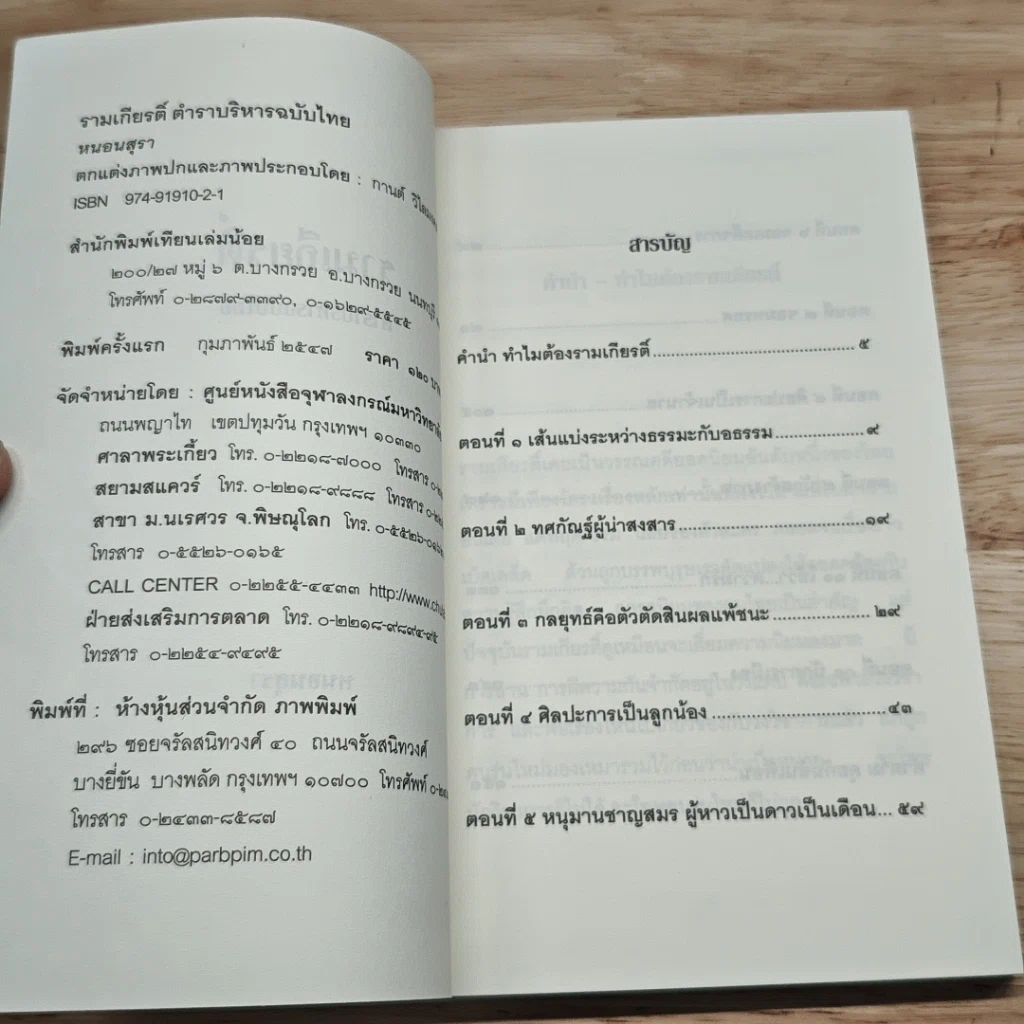 รามเกียรติ์ ตำราบริหารฉบับไทย
หนอนสุรา
ตกแต่งภาพปกและภาพประกอบโดย : กานต์
ISBN 974-91910-2-1
สำนักพิมพ์เทียนเล่มน้อย
๒๐๐/๒๗ หมู่ ๖ ต.บางกรวย อ.บางกรวย นนทบุรี
โทรศัพท์ ๐-๒๘๗๙-๓๓๙๐, ๐-๑๖๒๙-๕๕๔๕
พิมพ์ครั้งแรก กุมภาพันธ์ ๒๕๔๗ ราคา ๑๒๐ บาท
จัดจำหน่ายโดย : ศูนย์หนังสือจุฬาลงกรณ์มหาวิทยาลัย
ถนนพญาไท เขตปทุมวัน กรุงเทพฯ ๑๐๓๓๐
ศาลาพระเกี้ยว โทร. ๐-๒๒๑๘-๗๐๐๐ โทรสาร
สยามสแควร์ โทร. ๐-๒๒๑๘-๙๘๘๘ โทรสาร
สาขา ม.นเรศวร จ.พิษณุโลก โทร.
โทรสาร ๐-๕๕๒๖-๐๑๖๕
CALL CENTER ๐-๒๒๕๕-๔๔๓๓
ฝ่ายส่งเสริมการตลาด โทร. ๐-๒๒๑๘-๙๘๙๔-๙๕
โทรสาร ๐-๒๒๕๔-๙๔๙๕
พิมพ์ที่ : ห้างหุ้นส่วนจำกัด ภาพพิมพ์
๒๙๖ ซอยจรัลสนิทวงศ์ ๔๐ ถนนจรัลสนิทวงศ์
บางยี่ขัน บางพลัด กรุงเทพฯ ๑๐๗๐๐ โทรศัพท์
โทรสาร ๐-๒๔๓๓-๘๕๘๗
E-mail : into@parbpim.co.th
สารบัญ
คำนำ ทำไมต้องรามเกียรติ์ ๕
ตอนที่ ๑ เส้นแบ่งระหว่างธรรมะกับอธรรม ๙
ตอนที่ ๒ ทศกัณฐ์ผู้น่าสงสาร ๑๙
ตอนที่ ๓ กลยุทธ์คือตัวตัดสินผลแพ้ชนะ ๒๙
ตอนที่ ๔ ศิลปะการเป็นลูกน้อง ๔๓
ตอนที่ ๕ หนุมานชาญสมร ผู้หาวเป็นดาวเป็นเดือน... ๕๙